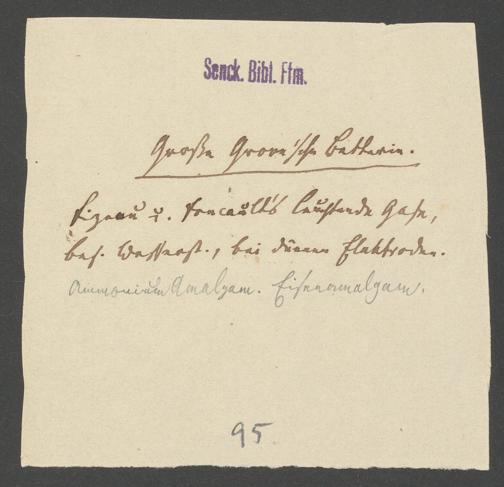 Senck. Bibl. Ffm.
Große Grove'sche Batterie.
Fizeau u. Foucault's leuchtende Gase,
bes. Wasserst., bei dünnen Elektroden.
Ammonium Amalgam. Eisenamalgam.
95